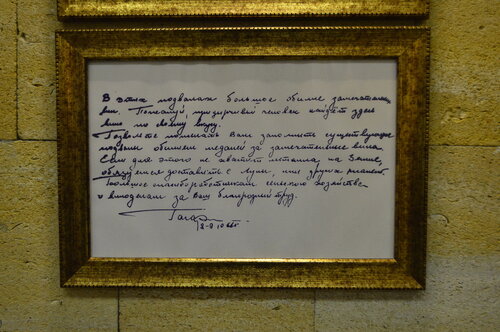 В этих подвалах большое обилие замечательных
вин. Пожалуй, придирчивый человек найдет здесь
вино по своему вкусу.
Позвольте пожелать Вам заполнить существующие
подвалы обилием медалей за замечательные вина.
Если для этого не хватит металла на Земле,
доставить с Луны, или других планет.
Большое спасибо работникам сельского хозяйства
и виноделам за Ваш благородный труд.
Гагарин
8-9 10 66г.